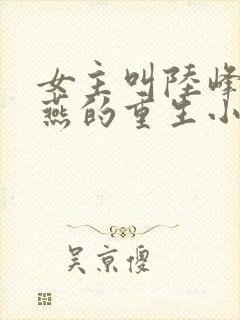 女主叫陸峰
燕的重生小
吴京傻